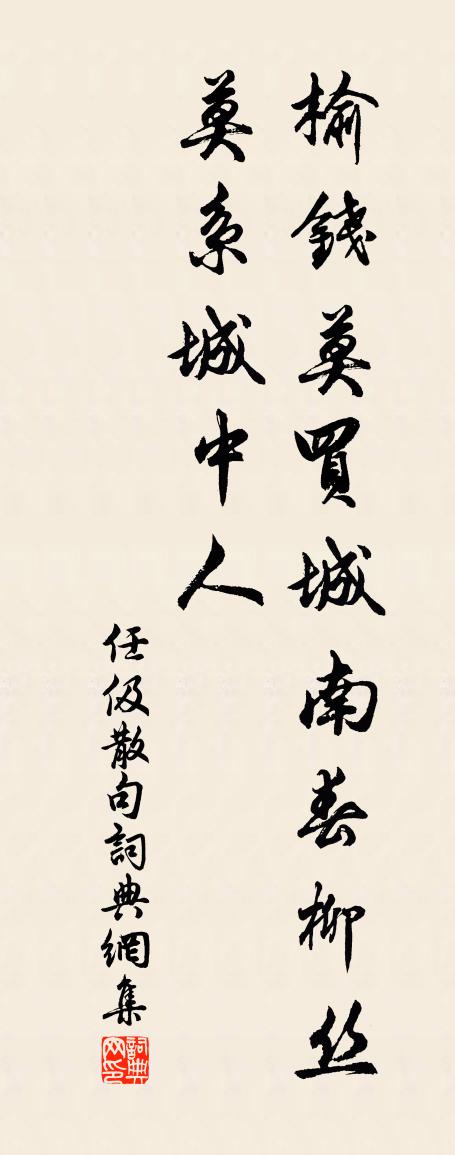 榆錢莫買城南春柳丝
莫系城中人
任伋散句詞典網集
詞典网印